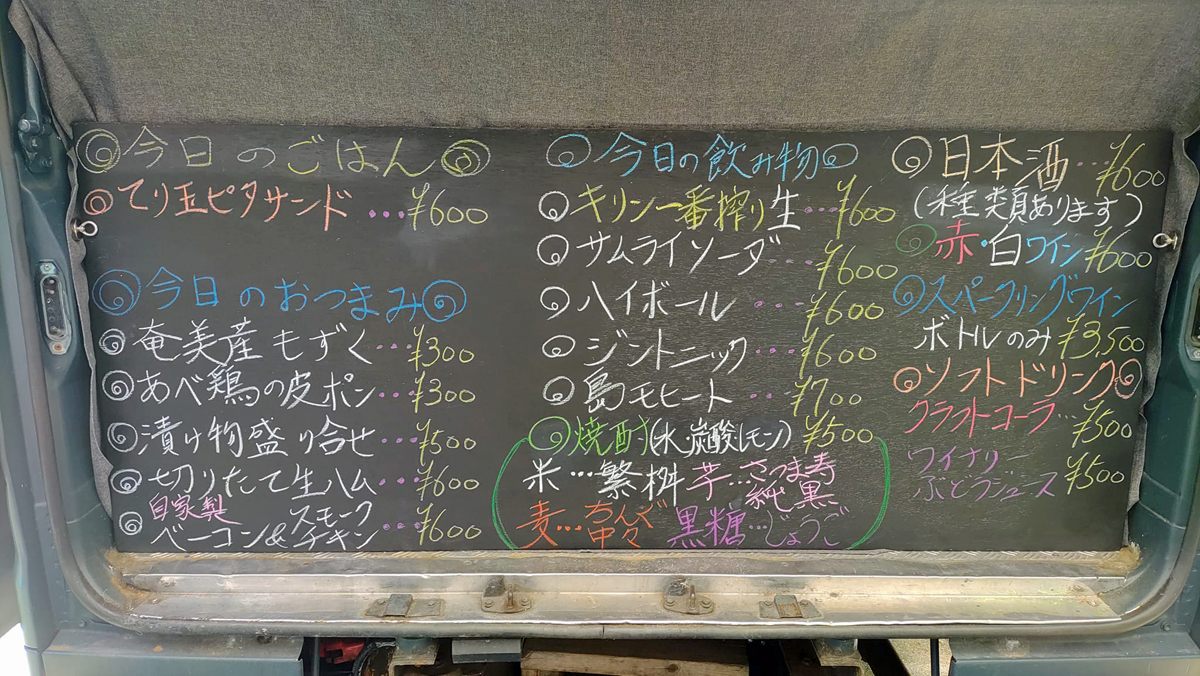 今日のごはん
てり玉ピタサンド…¥600
今日のおつまみ
奄美産もずく…¥300
あべ鶏の皮ポン…¥300
漬け物盛り合せ…¥500
切りたて生ハム…¥600
自家製
ベーコン&スモークチキン…¥600
今日の飲み物
キリン一番搾り生…¥600
サムライソーダ…¥600
ハイボール…¥600
ジントニック…¥600
島モヒート…¥700
焼酎(水・炭酸・レモン)¥500
米…繁桝 芋…さつま寿
純黒
麦…ちんぐ
中々
黒糖…じょうご
日本酒…¥600
(種類あります)
赤・白ワイン¥600
スパークリングワイン
ボトルのみ¥3,500
ソフトドリンク
クラフトコーラ…¥500
ワイナリー
ぶどうジュース¥500